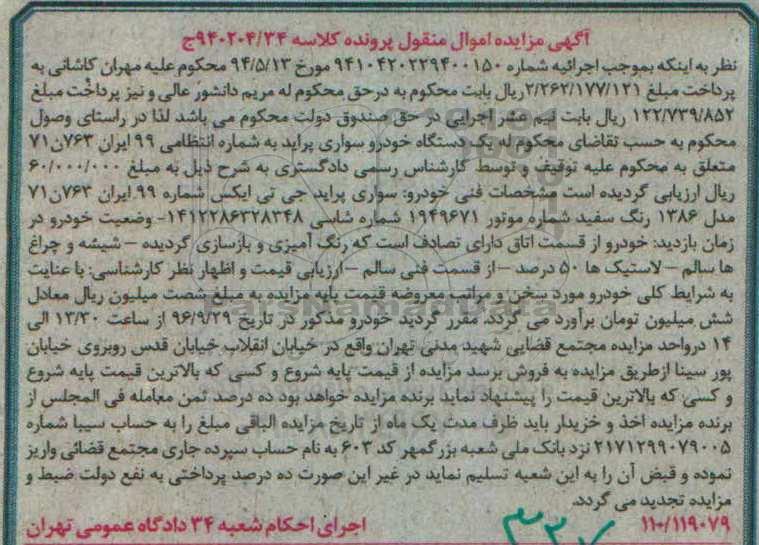 آگهی مزایده اموال منقول پرونده کلاسه ۹۴۰۲۰۴/۳۴ج
نظر به اینکه بموجب اجرائیه شماره ۹۴۱۰۴۲۰۲۲۹۴۰۰۱۵۰ مورخ ۹۴/۵/۱۳ محکوم علیه مهران کاشانی به
پرداخت مبلغ ۲/۲۶۲/۱۷۷/۱۲۱ ریال بابت محکوم به درحق محکوم له مریم دانشور عالی و نیز پرداخت مبلغ
۱۲۲/۷۳۹/۸۵۲ ریال بابت نیم عشر اجرایی در حق صندوق دولت محکوم می باشد لذا در راستای وصول
محکوم به حسب تقاضای محکوم له یک دستگاه خودرو سواری پراید به شماره انتظامی ۹۹ ایران ۷۶۳ن۷۱
متعلق به محکوم علیه توقیف و توسط کارشناس رسمی دادگستری به شرح ذیل به مبلغ ۶۰/۰۰۰/۰۰۰
ریال ارزیابی گردیده است مشخصات فنی خودرو: سواری پراید جی تی ایکس شماره ۹۹ ایران ۷۶۳ن۷۱
مدل ۱۳۸۶ رنگ سفید شماره موتور ۱۹۴۹۶۷۱ شماره شاسی ۱۴۱۲۲۸۶۳۲۸۳۴۸- وضعیت خودرو در
زمان بازدید: خودرو از قسمت اتاق دارای تصادف است که رنگ آمیزی و بازسازی گردیده – شیشه و چراغ
ها سالم – لاستیک ها ۵۰ درصد – از قسمت فنی سالم – ارزیابی قیمت و اظهار نظر کارشناسی: با عنایت
به شرایط کلی خودرو مورد سخن و مراتب معروضه قیمت پایه مزایده به مبلغ شصت میلیون ریال معادل
شش میلیون تومان برآورد می گردد. مقرر گردید خودرو مذکور در تاریخ ۹۶/۹/۲۹ از ساعت ۱۳/۳۰ الی
۱۴ درواحد مزایده مجتمع قضایی شهید مدنی تهران واقع در خیابان انقلاب خیابان قدس روبروی خیابان
پور سینا ازطریق مزایده به فروش برسد مزایده از قیمت پایه شروع و کسی که بالاترین قیمت پایه شروع
و کسی که بالاترین قیمت را پیشنهاد نماید برنده مزایده خواهد بود ده درصد ثمن معامله فی المجلس از
برنده مزایده اخذ و خریدار باید ظرف مدت یک ماه از تاریخ مزایده الباقی مبلغ را به حساب سیبا شماره
۲۱۷۱۲۹۹۰۷۹۰۰۵ نزد بانک ملی شعبه بزرگمهر کد ۶۰۳ به نام حساب سپرده جاری مجتمع قضائی واریز
نموده و قبض آن را به این شعبه تسلیم نماید در غیر این صورت ده درصد پرداختی به نفع دولت ضبط و
مزایده تجدید می گردد.
۱۱۰/۱۱۹۰۷۹ اجرای احکام شعبه ۳۴ دادگاه عمومی تهران